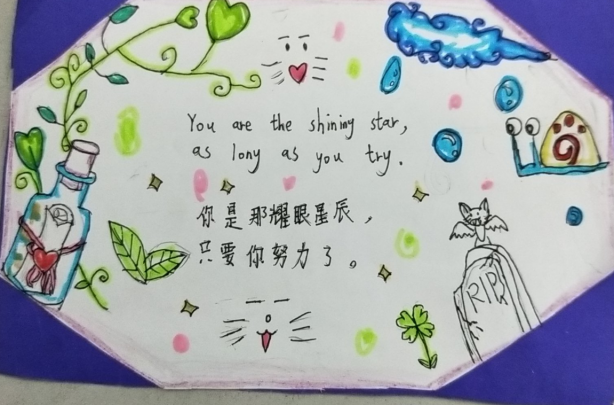 You are the shining star,
as long as you try.
你是那耀眼星辰，
只要你努力了。
RIP